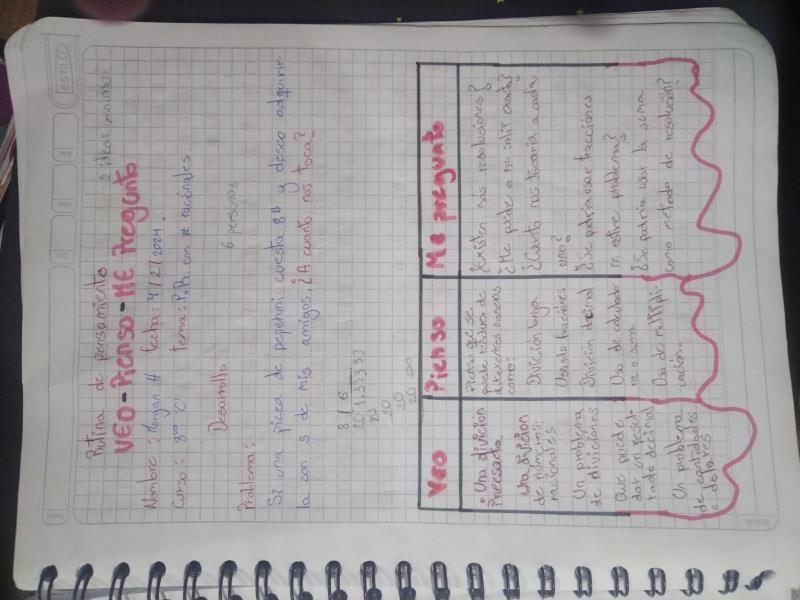 Rutina de pensamiento
5 ideas mínimo
VEO-Pienso-ME Pregunto
Nombre: Morgan H fecha: 4/2/2024.
Curso: 8vo "C" tema: P.R. con # racionales
Desarrollo
6 personas
Problema:
Si una pizza de peperoni cuesta 8$ y deseo adquirir
la con 5 de mis amigos. ¿A cuanto nos toca?
8 / 6
20 1,33333
20
20
20
20
VEO
• Una división
inexacta
una división
de números
racionales
Un problema
de divisiones
Que puede
dar un resul
tado decimal
Un problema
de cantidades
dolares
Pienso
Pienso que se
puede resolver de
diferentes maneras
como:
División larga
Usando fracciones
División decimal
Uso de calculado
ra o suma
Uso de multipli-
cación.
Me pregunto
¿Existen más resoluciones?
¿Me puede o no salir exacta?
¿Cuanto nos tocaria a cada
uno?
¿Se podria usar fracciones
en este problema?
¿Se podria usar la suma
como método de resolución?
ESTILO